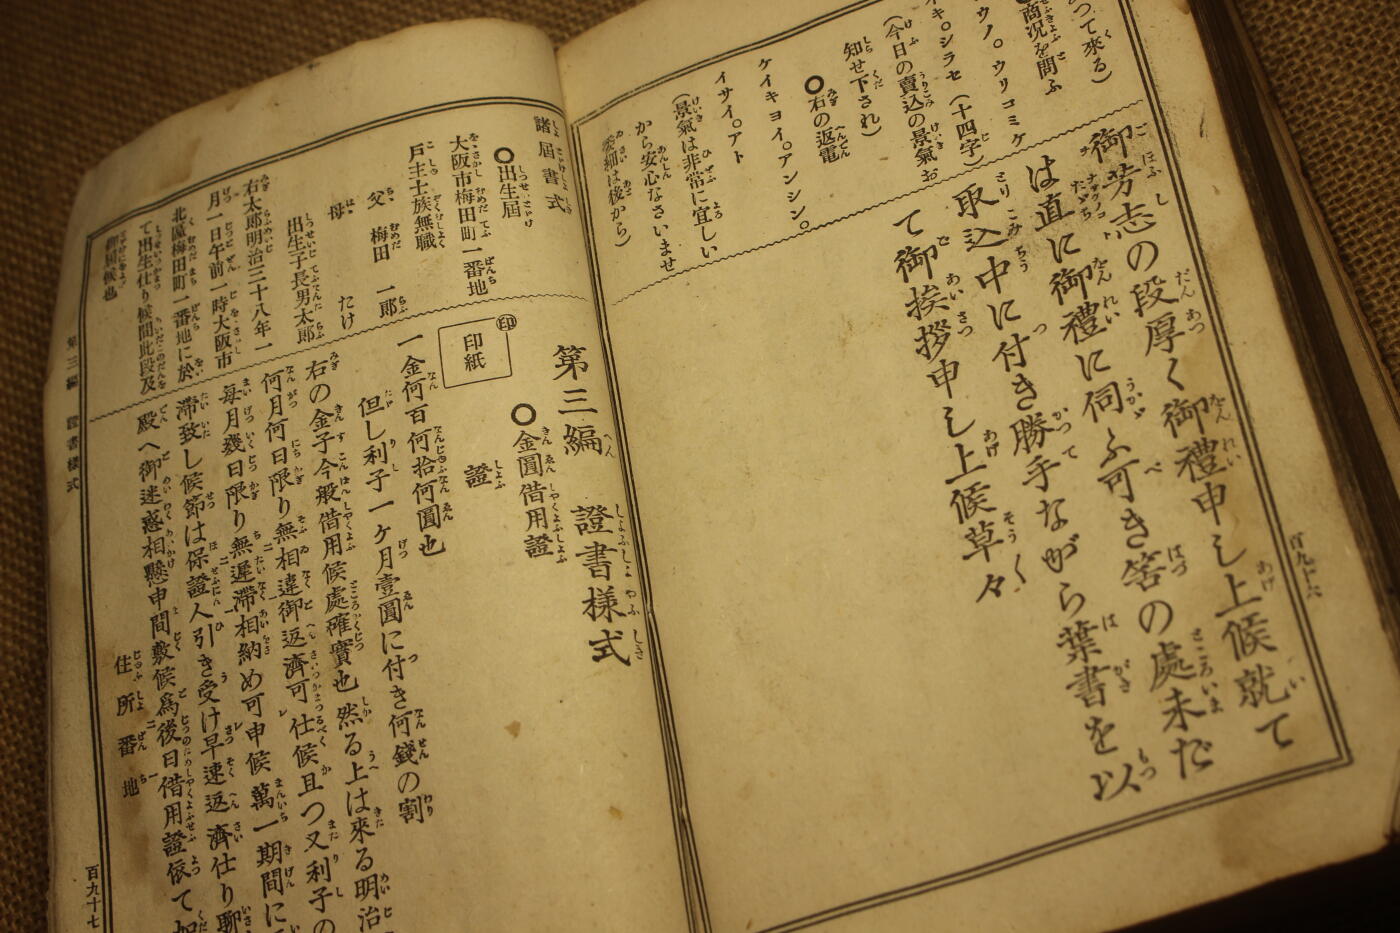 つて來る)
商況を問ふ
ウノ。ウリコミケ
キ。シラセ(十四字)
(今日の賣込の景氣お
知せ下され)
〇右の返電
ケイキヨイ。アンシン。
イサイ。アト
(景氣は非常に宜しい
から安心なさいませ
委細は後から)
御芳志の段厚く御禮申し上候就て
は直に御禮に伺ふ可き筈の處未だ
取込中に付き勝手ながら葉書を以
て御挨拶申し上候草々
百九十六
諸届書式
〇出生屆
大阪市梅田町一番地
戸主士族無職
父 梅田 一郎
母 たけ
出生子長男太郎
右太郎明治三十八年一
月一日午前一時大阪市
北區梅田町一番地に於
て出生仕り候間此段及
御屆候也
第三編 證書樣式
〇金圓借用證
證
印
印紙
一金何百何拾何圓也
但し利子一ケ月壹圓に付き何錢の割
右の金子今般借用候處確實也然る上は來る明治
何月何日限り無相違御返濟可仕候且つ又利子の
毎月幾日限り無遲滯相納め可申候萬一期間に
滯致し候節は保證人引き受け早速返濟仕り聊
殿へ御迷惑相懸申間敷候爲後日借用證依て如
住所番地
第三編 證書樣式
百九十七